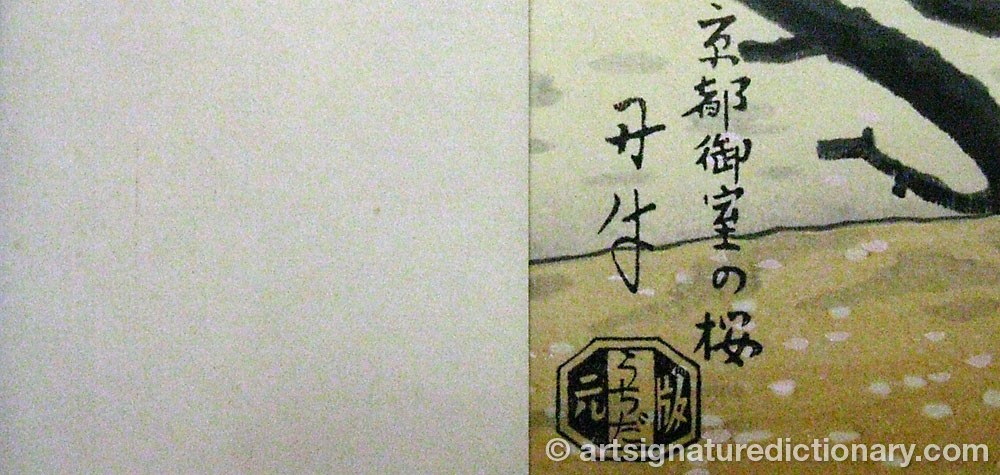 京都御室の桜
丹生
版
うちだ
元
© artsignaturedictionary.com